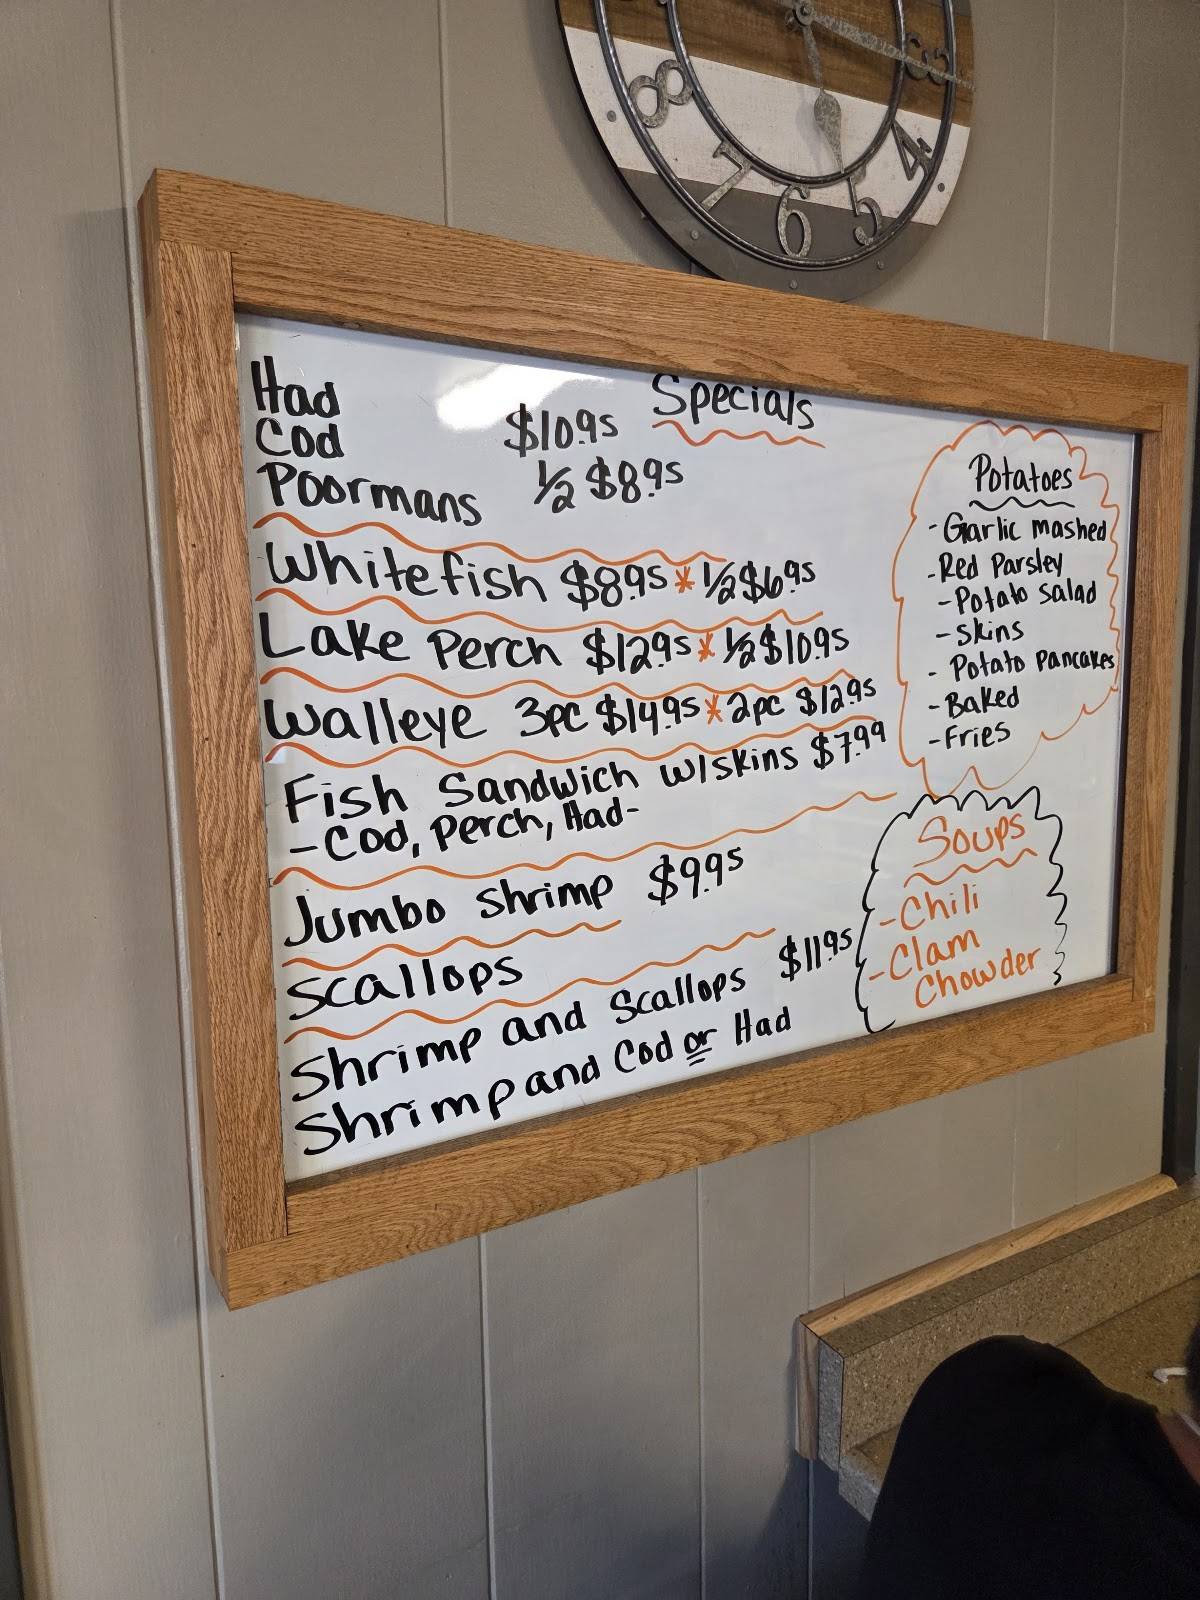 8
7
6
5
4
3
Specials
Had
Cod $10.95
Poormans 1/2 $8.95
Whitefish $8.95 * 1/2 $6.95
Lake Perch $12.95 * 1/2 $10.95
Walleye 3pc $14.95 * 2pc $12.95
Fish Sandwich w/skins $7.99
-Cod, Perch, Had-
Jumbo Shrimp $9.95
Scallops
Shrimp and Scallops $11.95
Shrimp and Cod or Had
Potatoes
- Garlic mashed
- Red Parsley
- Potato Salad
- Skins
- Potato Pancakes
- Baked
- Fries
Soups
- Chili
- Clam
Chowder